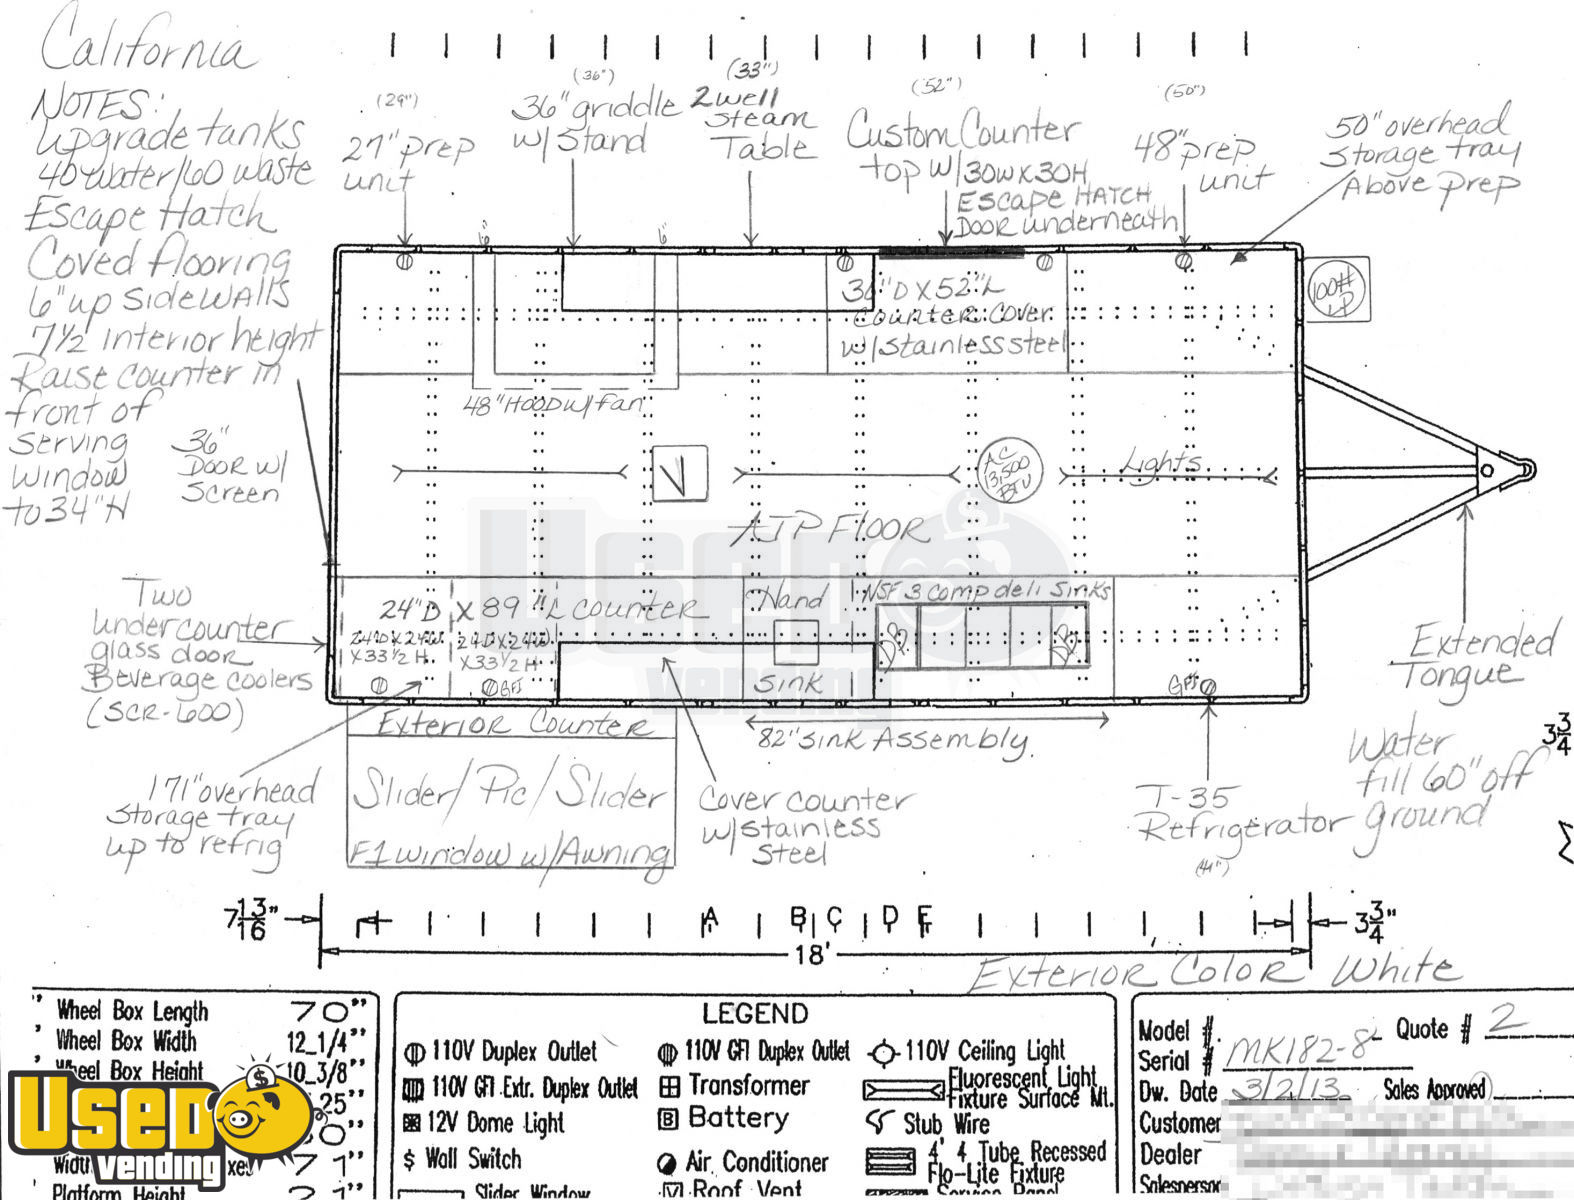 California
NOTES:
Upgrade tanks
40 water/60 waste
Escape Hatch
Coved flooring
6" up sidewalls
7½ interior height
Raise counter in
front of
serving
window
to 34"H
36"
DOOR w/
screen
(29")
27" prep
unit
(36")
36" griddle
w/ Stand
(33")
2 well
steam
Table
(52")
Custom Counter
top w/ 30W x 30H
Escape HATCH
DOOR underneath
(50")
48" prep
unit
50" overhead
storage tray
Above prep
6"
6"
100#
LP
36"D x 52"L
counter cover
w/ stainless steel
48" HOOD w/ fan
V
AC
13,500
BTU
Lights
ATP FLOOR
Two
under counter
glass door
Beverage coolers
(SCR-600)
24"D x 89"L counter
24D x 24W
x 33½ H
24D x 24W
x 33½ H
GFI
Hand
sink
NSF 3 comp deli sinks
DB
DB
GFI
Extended
Tongue
Exterior Counter
Slider/ Pic/ Slider
F1 window w/ Awning
82" sink Assembly
171" overhead
storage tray
up to refrig
Cover counter
w/ stainless
steel
T-35
Refrigerator
Water
fill 60" off
ground
3 3/4
7 13/16"
A B C D E
3 3/4"
18'
Exterior Color White
Wheel Box Length 70"
Wheel Box Width 12_1/4"
Wheel Box Height 10_3/8"
Platform Height
LEGEND
110V Duplex Outlet
110V GFI Extr. Duplex Outlet
12V Dome Light
$ Wall Switch
Slider Window
110V GFI Duplex Outlet
Transformer
B Battery
Air Conditioner
V Roof Vent
110V Ceiling Light
Fluorescent Light
Fixture Surface Mt.
Stub Wire
4' 4 Tube Recessed
Flo-Lite Fixture
Service Panel
Model #
Serial # MK182-8
Quote # 2
Dw. Date 3/2/13
Sales Approved
Customer
Dealer
Salesperson
USED
vending
$
USED
vending
$